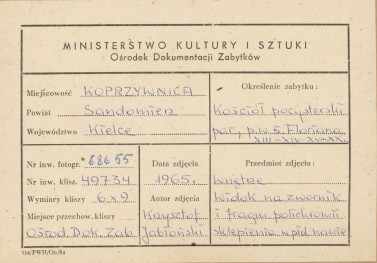 MINISTERSTWO KULTURY I SZTUKI
Ośrodek Dokumentacji Zabytków
Miejscowość KOPRZYWNICA
Powiat Sandomierz
Województwo Kielce
Określenie zabytku:
Kościół pocysterski
par. p.w. Ś. Floriana
XIII-XIV-XV-XX
Nr inw. fotogr. 68655
Nr inw. klisz. 49734
Wymiary kliszy 6x9
Miejsce przechow. kliszy
Ośrod. Dok. Zab
Data zdjęcia
1965
Autor zdjęcia
Krzysztof
Jabłoński
Przedmiot zdjęcia:
wnętrze
widok na zwornik
i fragm. polichromii
sklepienia w płd nawie